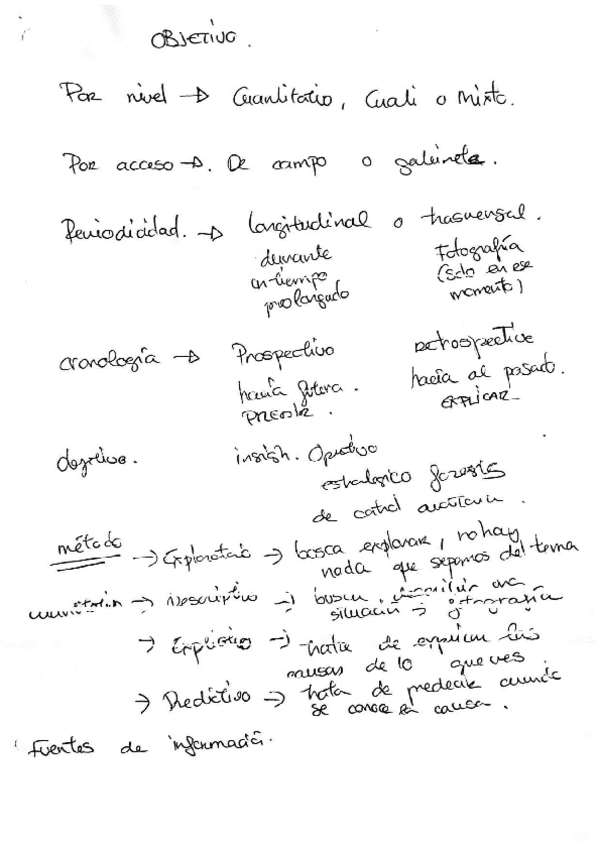 OBJETIVO.
Por nivel → Cuantitativo, Cuali o mixto.
Por acceso → De campo o gabinete.
Periodicidad. → longitudinal o trasversal.
durante Fotografía
un tiempo (solo en ese
prolongado momento)
cronología → Prospectivo retrospective
hacia futura. hacia al pasado.
EXPLICAR
objetivo. insigh. Opetivo
de
método → Exploratorio → busca explorar, no hay
nada que sepamos del tema
→ Descriptivo → buscar una
situación → fotografía
→ Explicativo → trata de explicar las
causas de lo que ves.
→ Predictivo → trata de predecir cuando
se conoce la causa.
Fuentes de información.